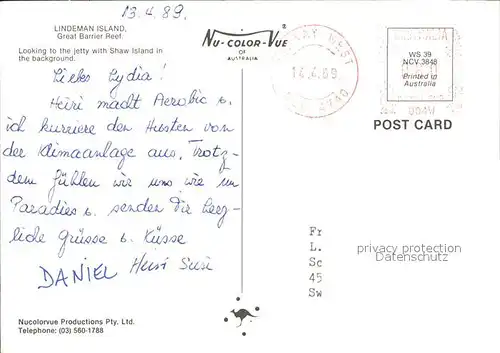 13.4.89.
LINDEMAN ISLAND,
Great Barrier Reef.
Looking to the jetty with Shaw Island in
the background.
Liebes Lydia!
Heiri macht Aerobic u.
ich kuriere den Husten von
der Klimaanlage aus. Trotz-
dem fühlen wir uns wie im
Paradies u. senden Dir herz-
liche Grüsse u. Küsse
DANIEL Heiri Susi
Nucolorvue Productions Pty. Ltd.
Telephone: (03) 560-1788
NU-COLOR-VUE
OF
AUSTRALIA
WEST
14.4.89
4740
AUSTRALIA
WS 39
NCV 3848
Printed in
Australia
POST CARD
Fr
L.
Sc
45
Sw
privacy protection
Datenschutz